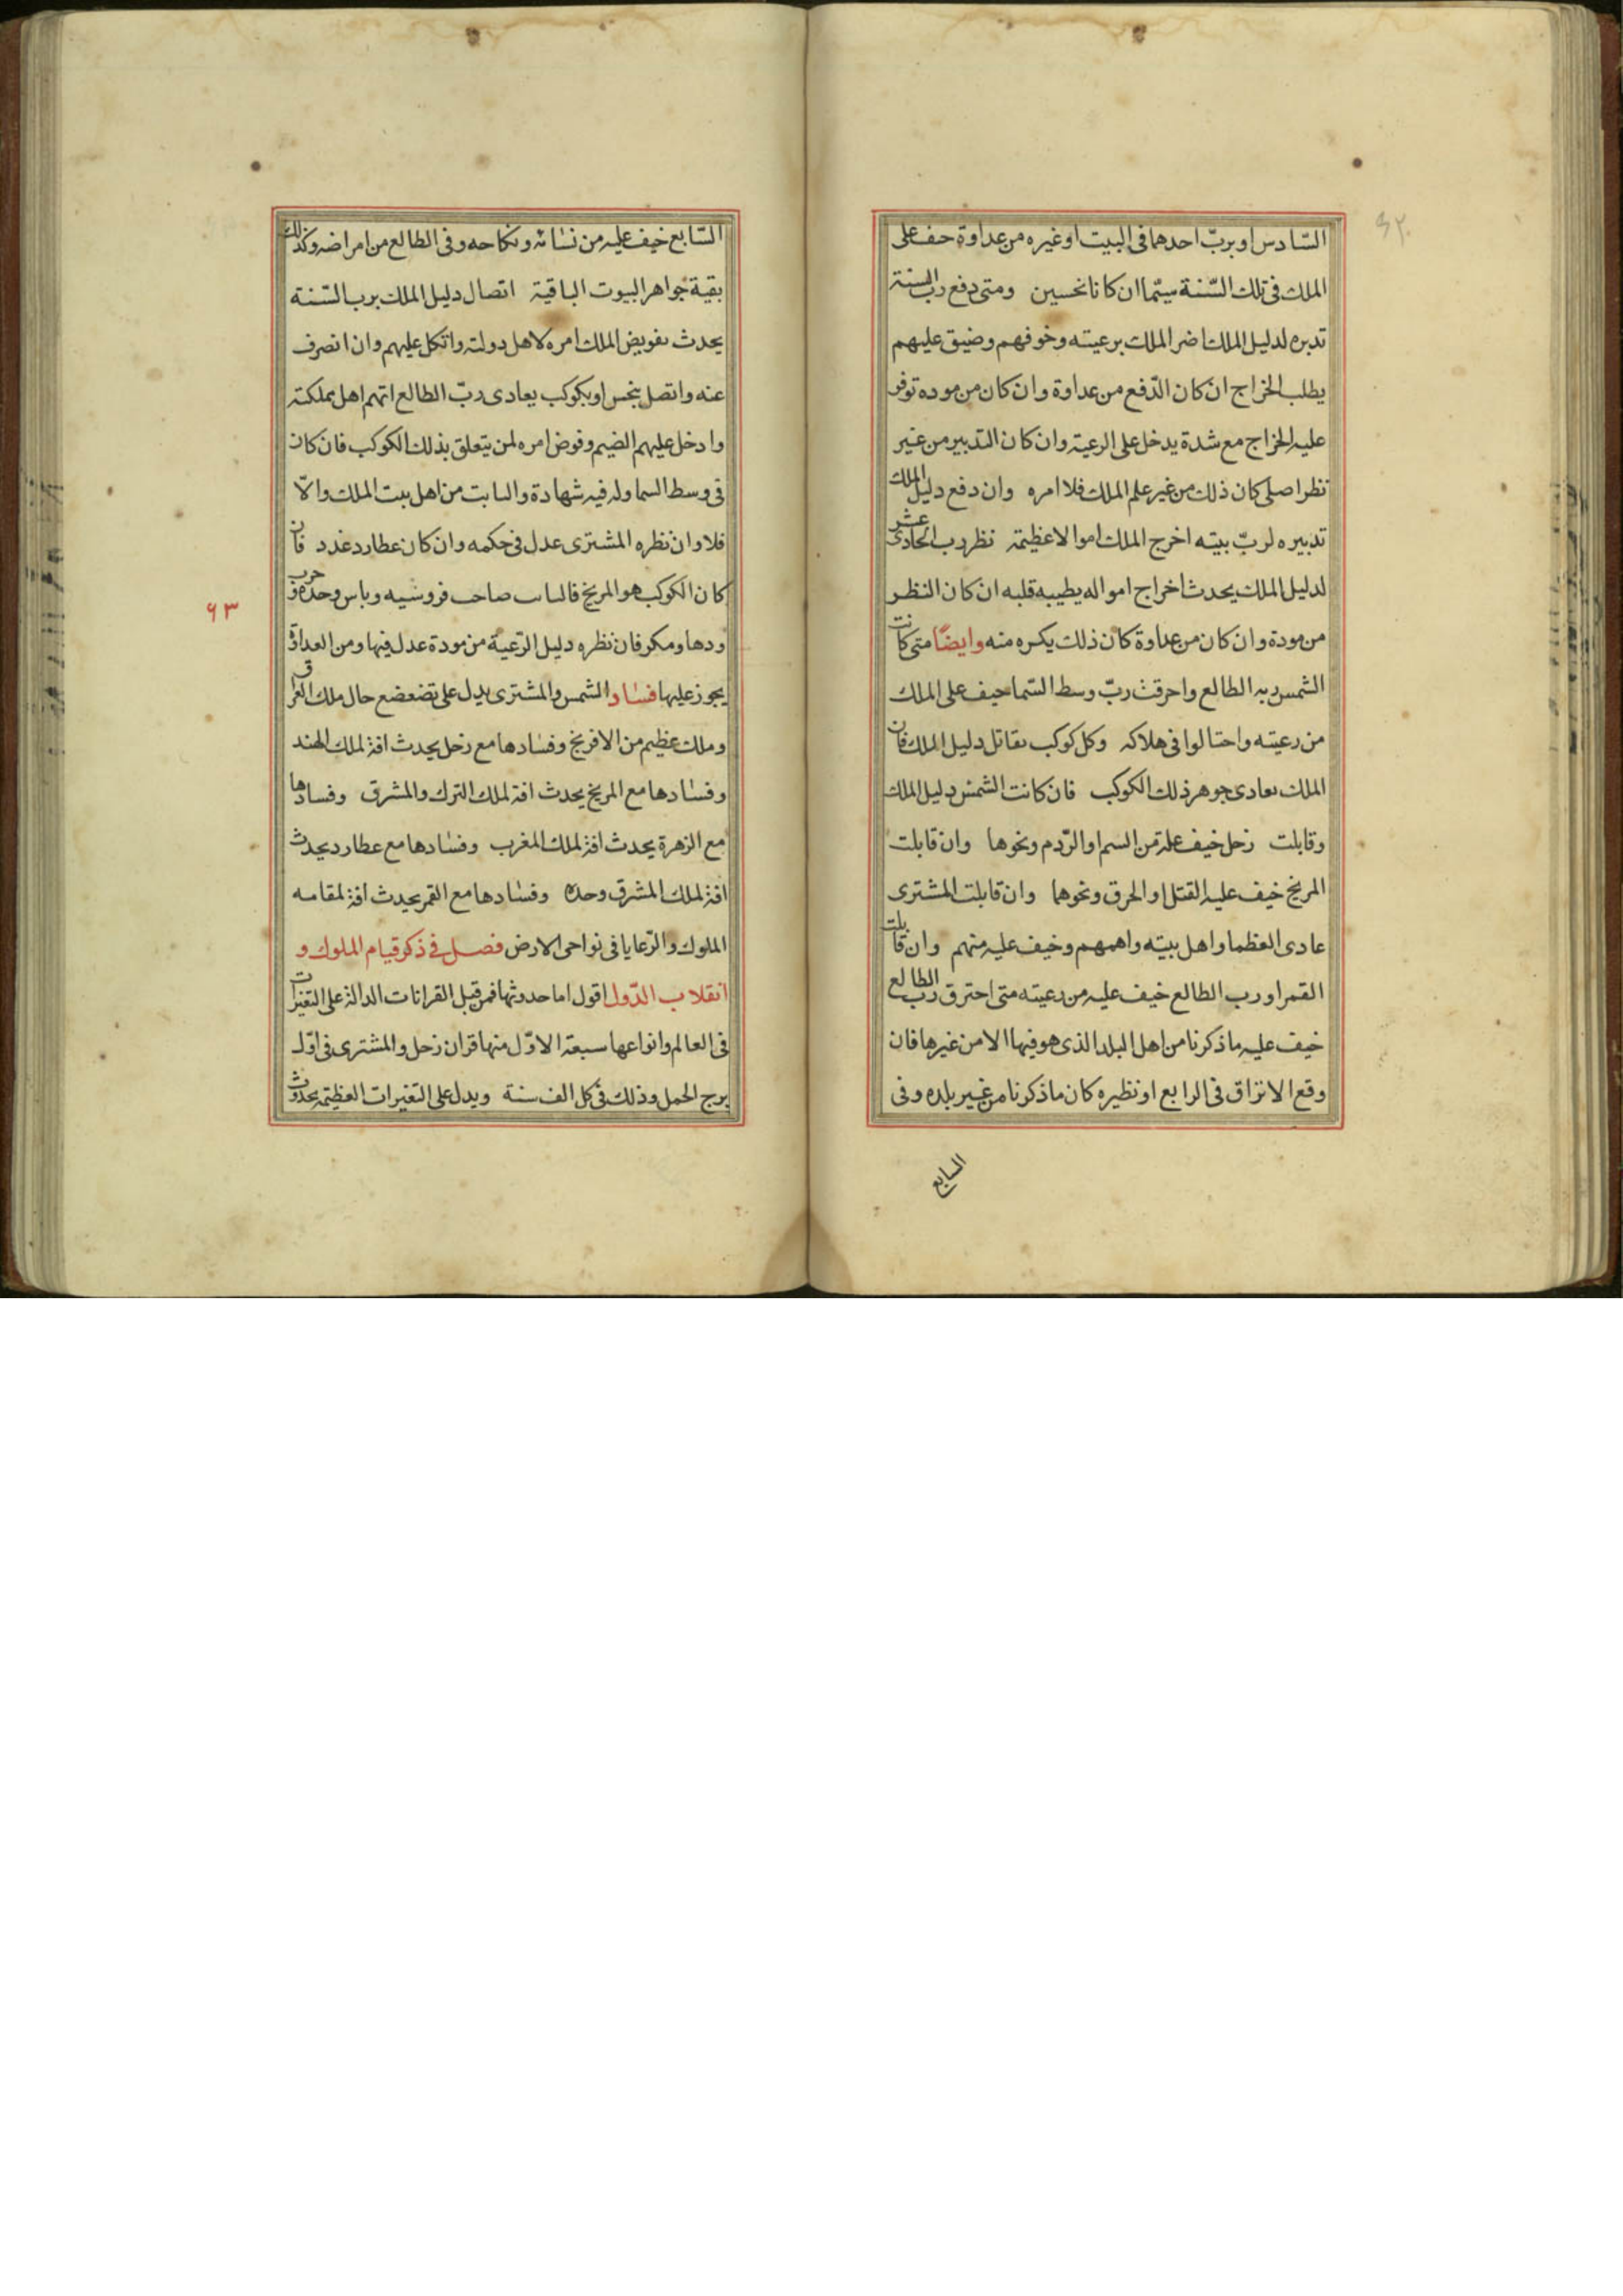 السّادس او بربّ احدهما فى البيت او غيره من عداوة حف على
الملك فى تلك السّنة سيّما ان كانا نحسين ومتى دفع رب السنة
تدبره لدليل الملك اضر الملك برعيته وخوفهم وضيق عليهم
يطلب الخراج ان كان الدّفع من عداوة وان كان من موده توفر
عليه الخراج مع شدة يدخل على الرعية وان كان التدبير من غير
نظر اصلى كان ذلك من غير علم الملك فلا امره وان دفع دليل الملك
تدبيره لربّ بيته اخرج الملك اموالا عظيمة نظر رب الحادى عشر
لدليل الملك يحدث اخراج امواله يطيبه قلبه ان كان النظر
من مودة وان كان من عداوة كان ذلك يكره منه وايضًا متى كانت
الشمس ربه الطالع واحرقت ربّ وسط السّما حيف على الملك
من رعيته واحتالوا فى هلاكه وكل كوكب يقاتل دليل الملك فان
الملك يعادى جوهر ذلك الكوكب فان كانت الشمس دليل الملك
وقابلت زحل خيف عليه من السم او الرّدم ونحوها وان قابلت
المريخ خيف عليه القتل او الحرق ونحوها وان قابلت المشترى
عادى العظما واهل بيته واهمهم وخيف عليه منهم وان قابلت
القمر او رب الطالع خيف عليه من رعيته متى احترق رب الطالع
خيف عليه ما ذكرنا من اهل البلد الذى هو فيها الا من غيرها فان
وقع الانزاق فى الرابع او نظيره كان ما ذكرنا من غير بلده وفى
السابع
السّابع خيف عليه من نسائه ونكاحه وفى الطالع من امراضه وكذلك
بقية جواهر البيوت الباقية اتصال دليل الملك برب السّنة
يحدث تفويض الملك امره لاهل دولته واتكل عليهم وان انصرف
عنه واتصل بنحس او بكوكب يعادى ربّ الطالع اتهم اهل مملكته
وادخل عليهم الضيم وفوض امره لمن يتعلق بذلك الكوكب فان كان
فى وسط السما وله فيه شهادة والسابت من اهل بيت الملك والّا
فلا وان نظره المشترى عدل فى حكمه وان كان عطارد غدر فان
كان الكوكب هو المريخ فالساب صاحب فروسيه وباس وحدة وحرب
ودها ومكر فان نظره دليل الرّعية من مودة عدل فيها ومن العداوة
يجوز عليها فساد الشمس والمشترى يدل على تضعضع حال ملك العراق
وملك عظيم من الافرنج وفسادها مع زحل يحدث افة لملك الهند
وفسادها مع المريخ يحدث افة لملك الترك والمشرق وفسادها
مع الزهرة يحدث افة لملك المغرب وفسادها مع عطارد يحدث
افة لملك المشرق وحده وفسادها مع القمر يحدث افة لمقامه
الملوك والرّعايا فى نواحى الارض فصل فى ذكر قيام الملوك و
انقلاب الدّول اقول اما حدوثها فمن قبل القرانات الدالة على التغيرات
فى العالم وانواعها سبعة الاوّل منها قران زحل والمشترى فى اوّل
برج الحمل وذلك فى كل الف سنة ويدل على التغيرات العظيمة بحدوث
٩٣